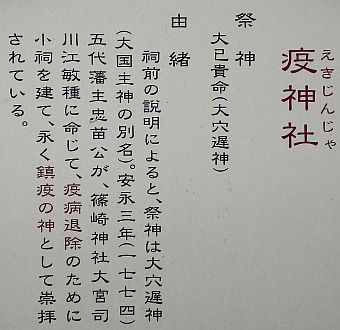 えきじんじゃ
疫神社
祭神
大已貴命(大穴遅神)
由緒
祠前の説明によると、祭神は大穴遅神
(大国主神の別名)。安永三年(一七七四)
五代藩主忠苗公が、篠崎神社大宮司
川江敏種に命じて、疫病退除のために
小祠を建て、永く鎮疫の神として崇拝
されている。